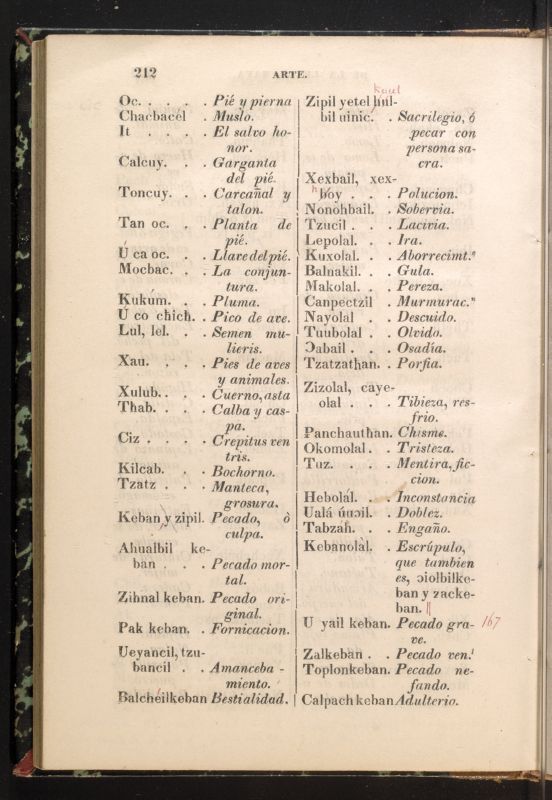 212 ARTE.
Oc. . . . . Pié y pierna
Chacbacél . Muslo.
It . . . . El salvo ho-
nor.
Calcuy. . . Garganta
del pié.
Toncuy. . . Carcañal y
talon.
Tan oc. . . Planta de
pié.
U ca oc. . . Llave del pié.
Mocbac. . . La conjun-
tura.
Kukúm. . . Pluma.
U co chich. . Pico de ave.
Lul, lel. . . Semen mu-
lieris.
Xau. . . . Pies de aves
y animales.
Xulub. . . Cuerno, asta
Thab. . . . Calba y cas-
pa.
Ciz . . . . Crepitus ven
tris.
Kilcab. . . Bochorno.
Tzatz . . . Manteca,
grosura.
Keban y zipil. Pecado, ò
culpa.
Ahualbil ke-
ban . . . Pecado mor-
tal.
Zihnal keban. Pecado ori-
ginal.
Pak keban. . Fornicacion.
Ueyancil, tzu-
bancil . . Amanceba-
miento.
Balcheilkeban Bestialidad.
Zipil yetel
bil uinic. . Sacrilegio, ó
pecar con
persona sa-
cra.
Xexbail, xex-
hboy . . . Polucion.
Nonohbail. . Sobervia.
Tzucil . . . Lacivia.
Lepolal. . . Ira.
Kuxolal. . . Aborrecimt.º
Balnakil. . . Gula.
Makolal. . . Pereza.
Canpectzil . Murmurac.n
Nayolal . . Descuido.
Tuubolal . . Olvido.
Ɔabail . . . Osadía.
Tzatzathan. . Porfia.
Zizolal, caye-
olal . . . Tibieza, res-
frio.
Panchauthan. Chisme.
Okomolal. . Tristeza.
Tuz. . . . Mentira, fic-
cion.
Hebolal. . . Inconstancia
Ualá úuɔil. . Doblez.
Tabzah. . . Engaño.
Kebanolàl. . Escrúpulo,
que tambien
es, ɔiolbilke-
ban y zacke-
ban.
U yail keban. Pecado gra- 167
ve.
Zalkeban . . Pecado ven.l
Toplonkeban. Pecado ne-
fando.
Calpach keban Adulterio.